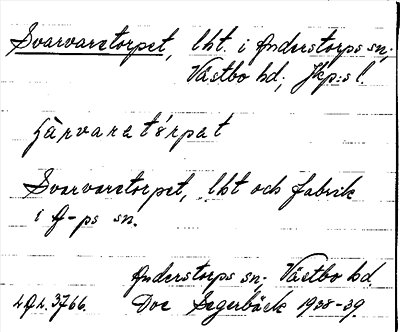 Svarvaretorpet, lht. i Anderstorps sn;
Västbo hd; Jkp:s l.
Svarvaretorpet, lht och fabrik
i A-ps sn.
Anderstorps sn. Västbo hd.
3766. Doc Segerbäck 1938-39.